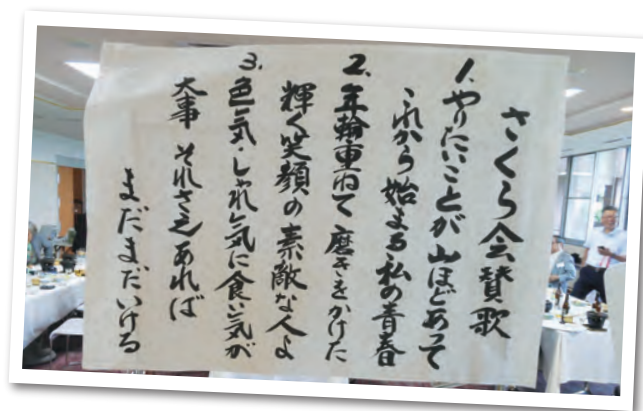 さくら会賛歌
1.やりたいことが山ほどあって
これから始まる私の青春
2.年輪重ねて磨きをかけた
輝く笑顔の素敵な人よ
3.色気・しゃれっ気に食い気が
大事それさえあれば
まだまだいける